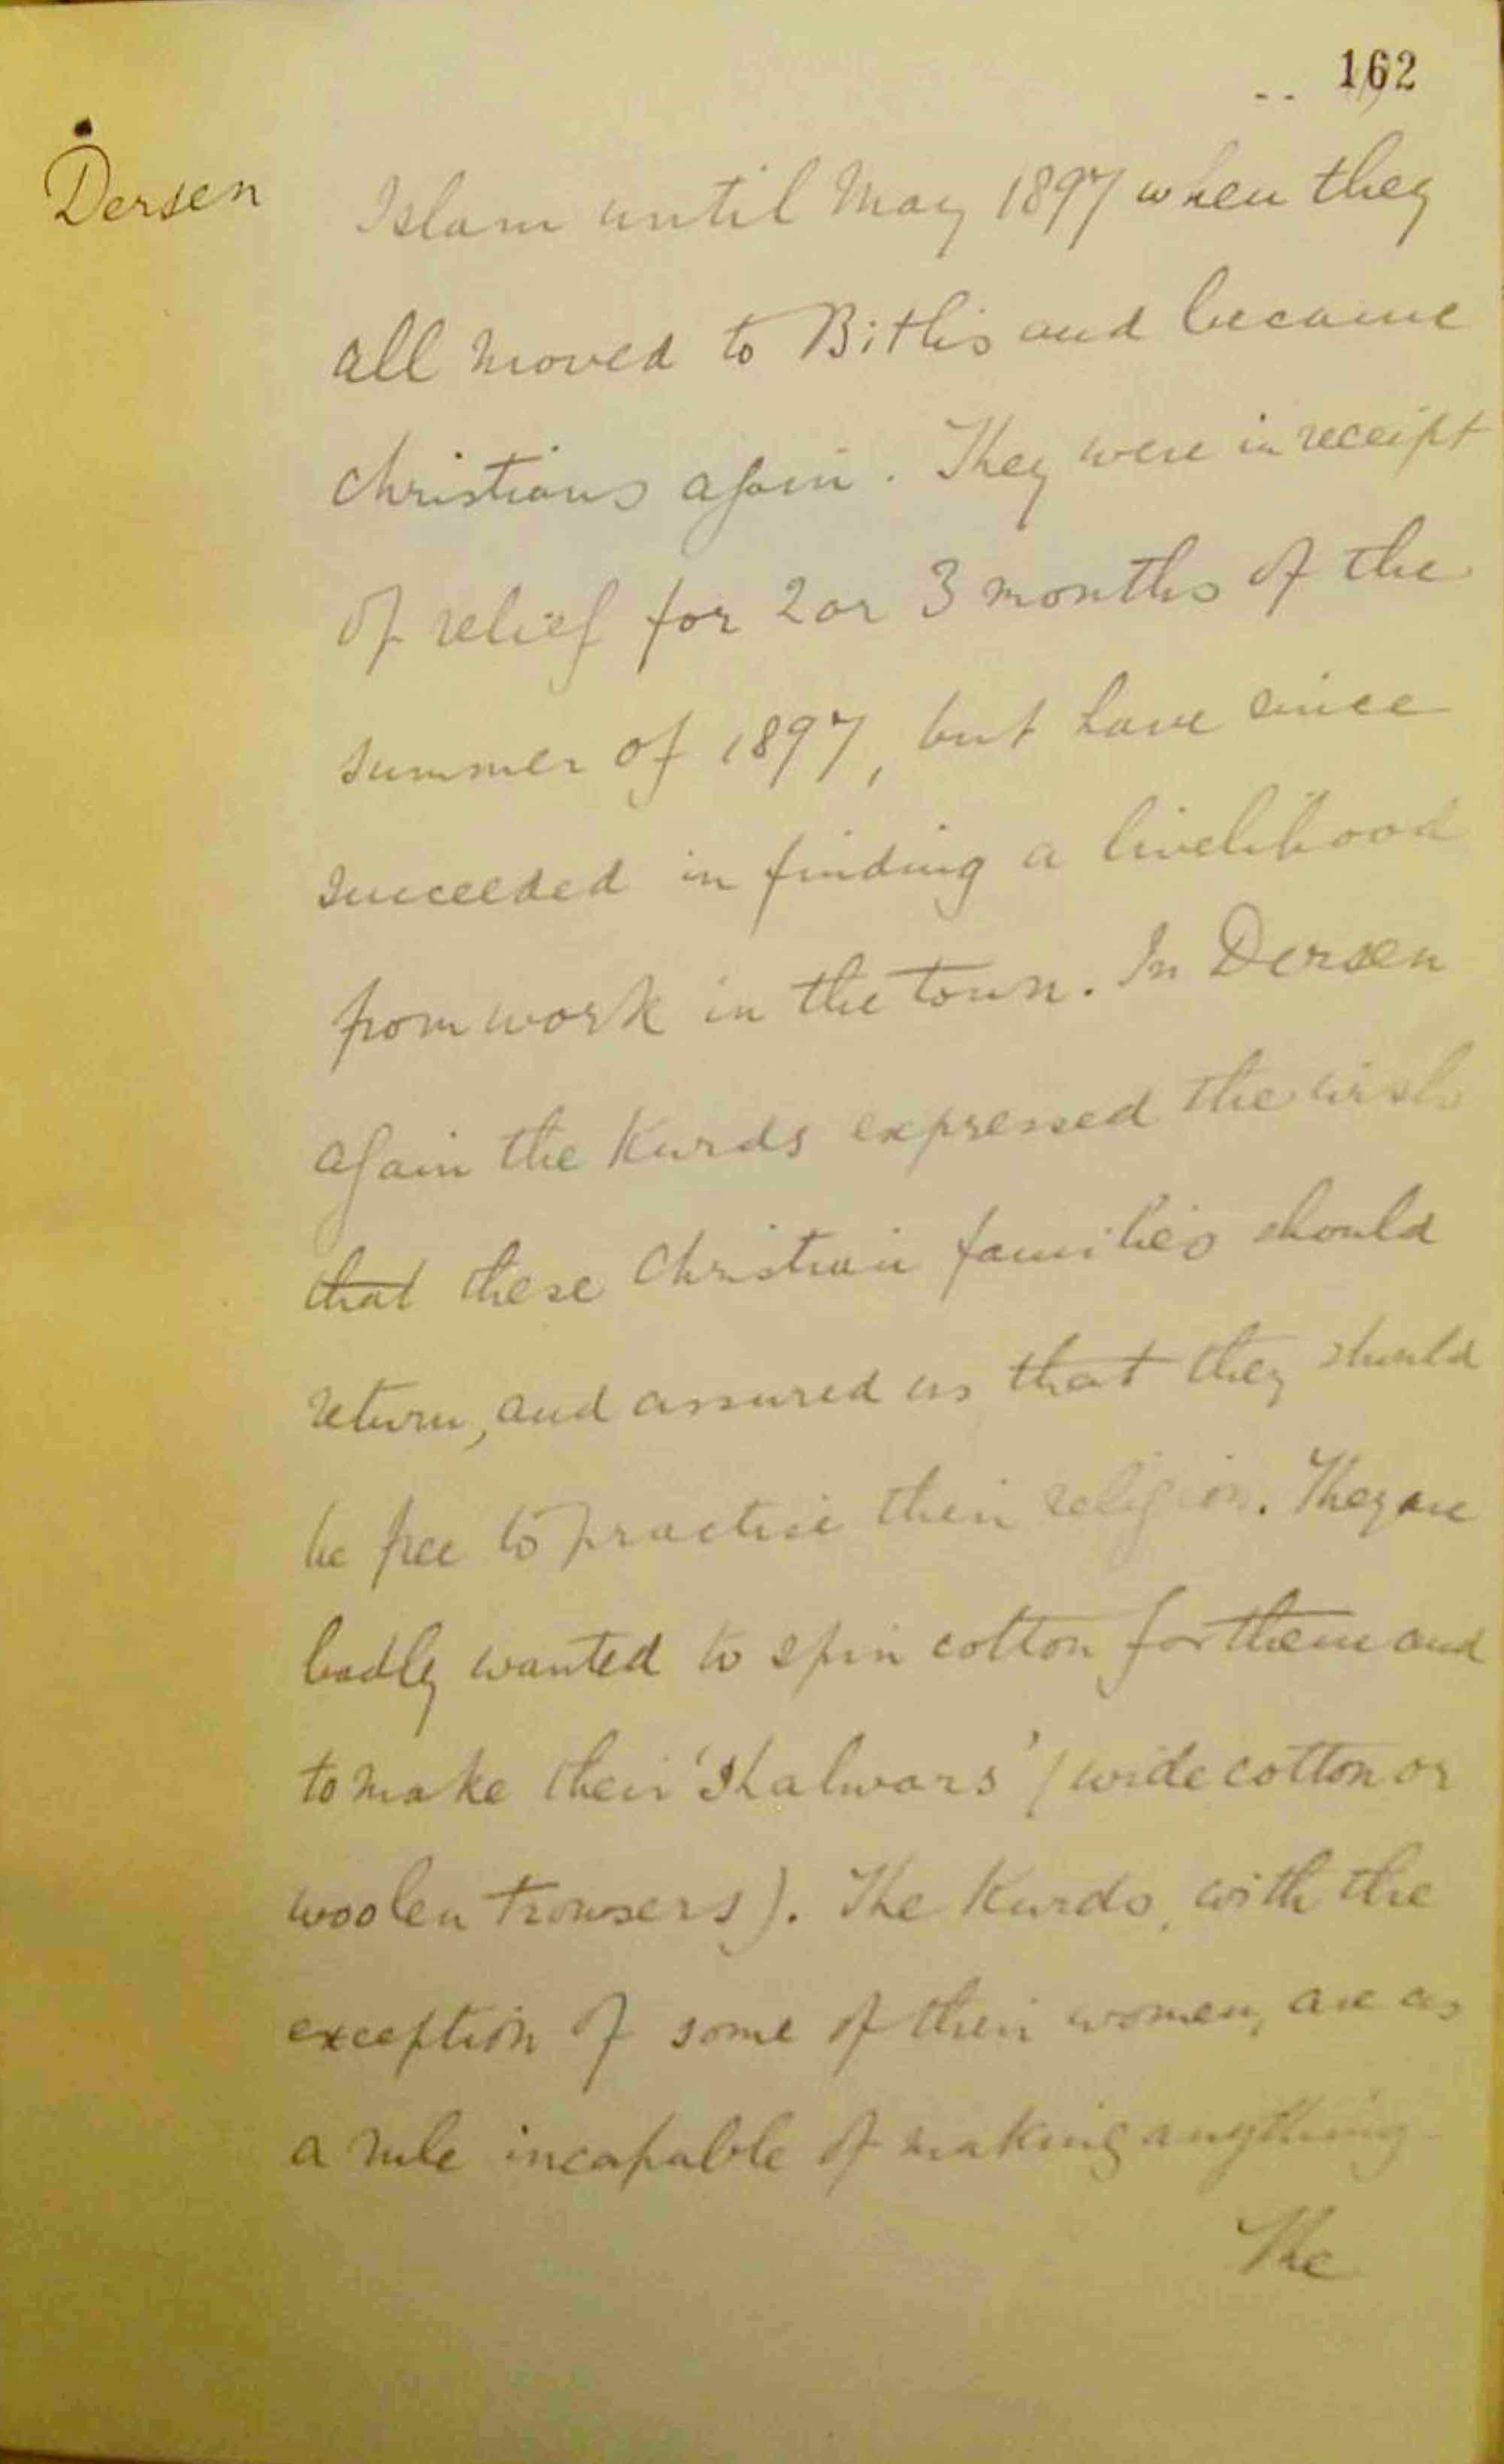 162
Dersen
Islam until May 1897 when they
all moved to Bitlis and became
Christians again. They were in receipt
of relief for 2 or 3 months of the
summer of 1897, but have since
succeeded in finding a livelihood
from work in the town. In Dersen
again the Kurds expressed the wish
that these Christian families should
return, and assured us that they should
be free to practise their religion. They are
badly wanted to spin cotton for them and
to make their 'Shalwars' (wide cotton or
woolen trowsers). The Kurds, with the
exception of some of their women, are as
a rule incapable of making anything
The